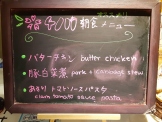 朝食メニュー
・バターチキン butter chicken
・豚＆ 煮 pork & stew
・あさりトマトソースパスタ
clam tomato sauce pasta